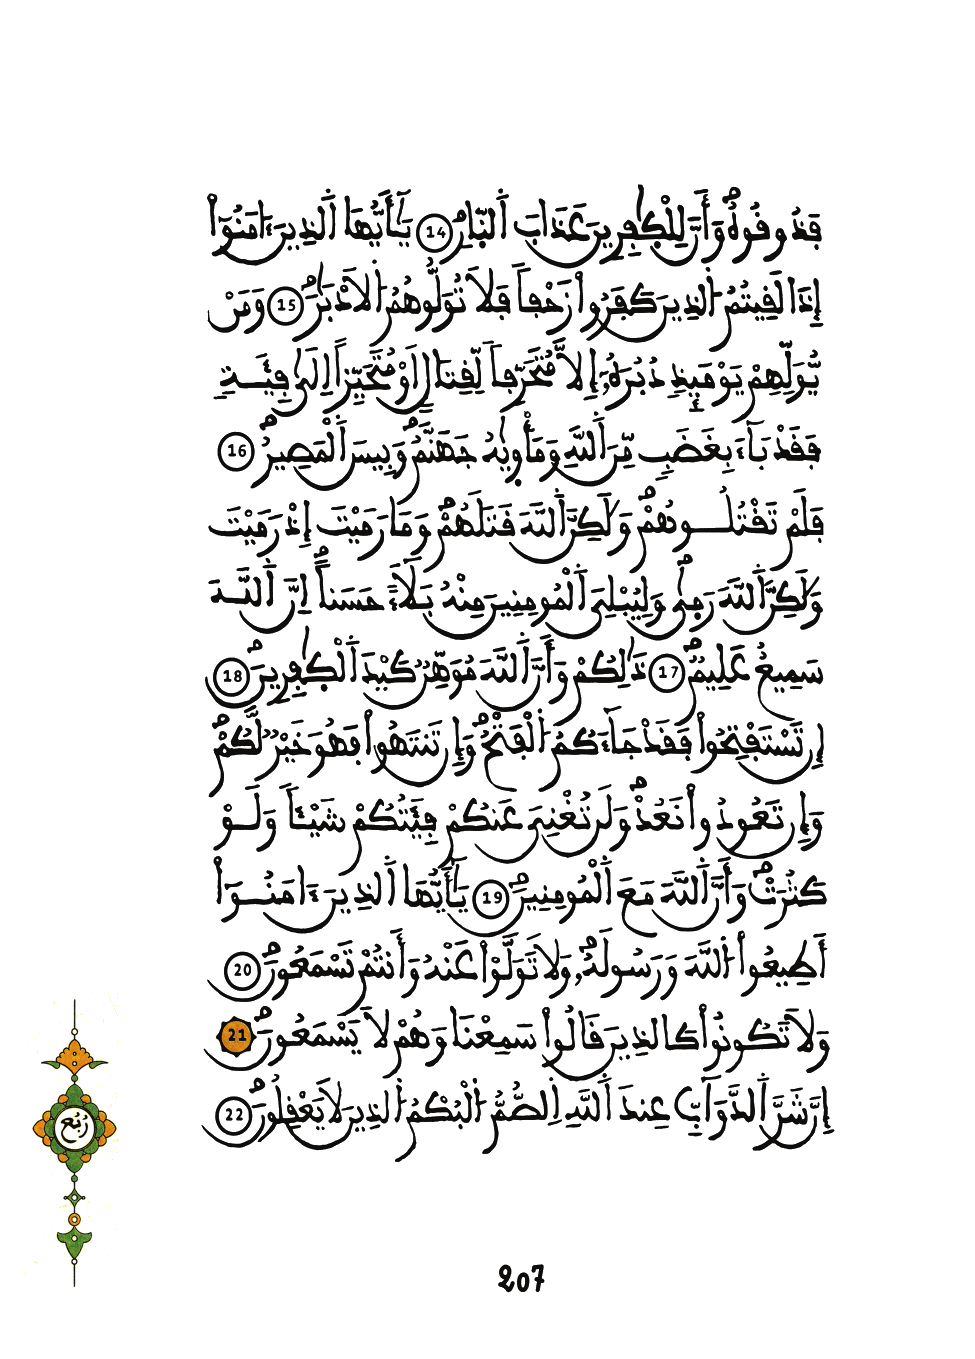 فَذُوفُوهُ وَأَنَّ لِلْكٰفِرِينَ عَذَابَ اَلنّ۪ارِ 14 يَٰٓأَيُّهَا اَلذِينَ ءَامَنُوٓاْ
إِذَا لَفِيتُمُ اُلذِينَ كَفَرُواْ زَحْفاٗ فَلَا تُوَلُّوهُمُ اُلَادْبَٰرَ 15 وَمَنْ
يُّوَلِّهِمْ يَوْمَئِذٖ دُبُرَهُۥٓ إِلَّا مُتَحَرِّفاٗ لِّفِتَالٍ اَوْ مُتَحَيِّزاً اِلَىٰ فِئَةٖ
فَفَدْ بَآءَ بِغَضَبٖ مِّنَ اَللَّهِ وَمَأْوٜيٰهُ جَهَنَّمُ وَبِيسَ اَلْمَصِيرُ 16
فَلَمْ تَفْتُلُوهُمْ وَلَٰكِنَّ اَللَّهَ فَتَلَهُمْ وَمَا رَمَيْتَ إِذْ رَمَيْتَ
وَلَٰكِنَّ اَللَّهَ رَمٜىٰ وَلِيُبْلِيَ اَلْمُومِنِينَ مِنْهُ بَلَآءً حَسَناً اِنَّ اَللَّهَ
سَمِيعٌ عَلِيمٌ 17 ذَٰلِكُمْ وَأَنَّ اَللَّهَ مُوَهِّنٞ كَيْدَ اَلْكٰفِرِينَ 18
إِن تَسْتَفْتِحُواْ فَفَدْ جَآءَكُمُ اُلْفَتْحُ وَإِن تَنتَهُواْ فَهُوَ خَيْرٞ لَّكُمْ
وَإِن تَعُودُواْ نَعُدْ وَلَن تُغْنِيَ عَنكُمْ فِئَتُكُمْ شَيْـٔاٗ وَلَوْ
كَثُرَتْ وَأَنَّ اَللَّهَ مَعَ اَلْمُومِنِينَ 19 يَٰٓأَيُّهَا اَلذِينَ ءَامَنُوٓاْ
أَطِيعُواْ اُللَّهَ وَرَسُولَهُۥ وَلَا تَوَلَّوْاْ عَنْهُ وَأَنتُمْ تَسْمَعُونَ 20
وَلَا تَكُونُواْ كَالذِينَ فَالُواْ سَمِعْنَا وَهُمْ لَا يَسْمَعُونَ 21
إِنَّ شَرَّ اَلدَّوَآبِّ عِندَ اَللَّهِ اِلصُّمُّ اُلْبُكْمُ اُلذِينَ لَا يَعْفِلُونَ 22
رُبُع
207